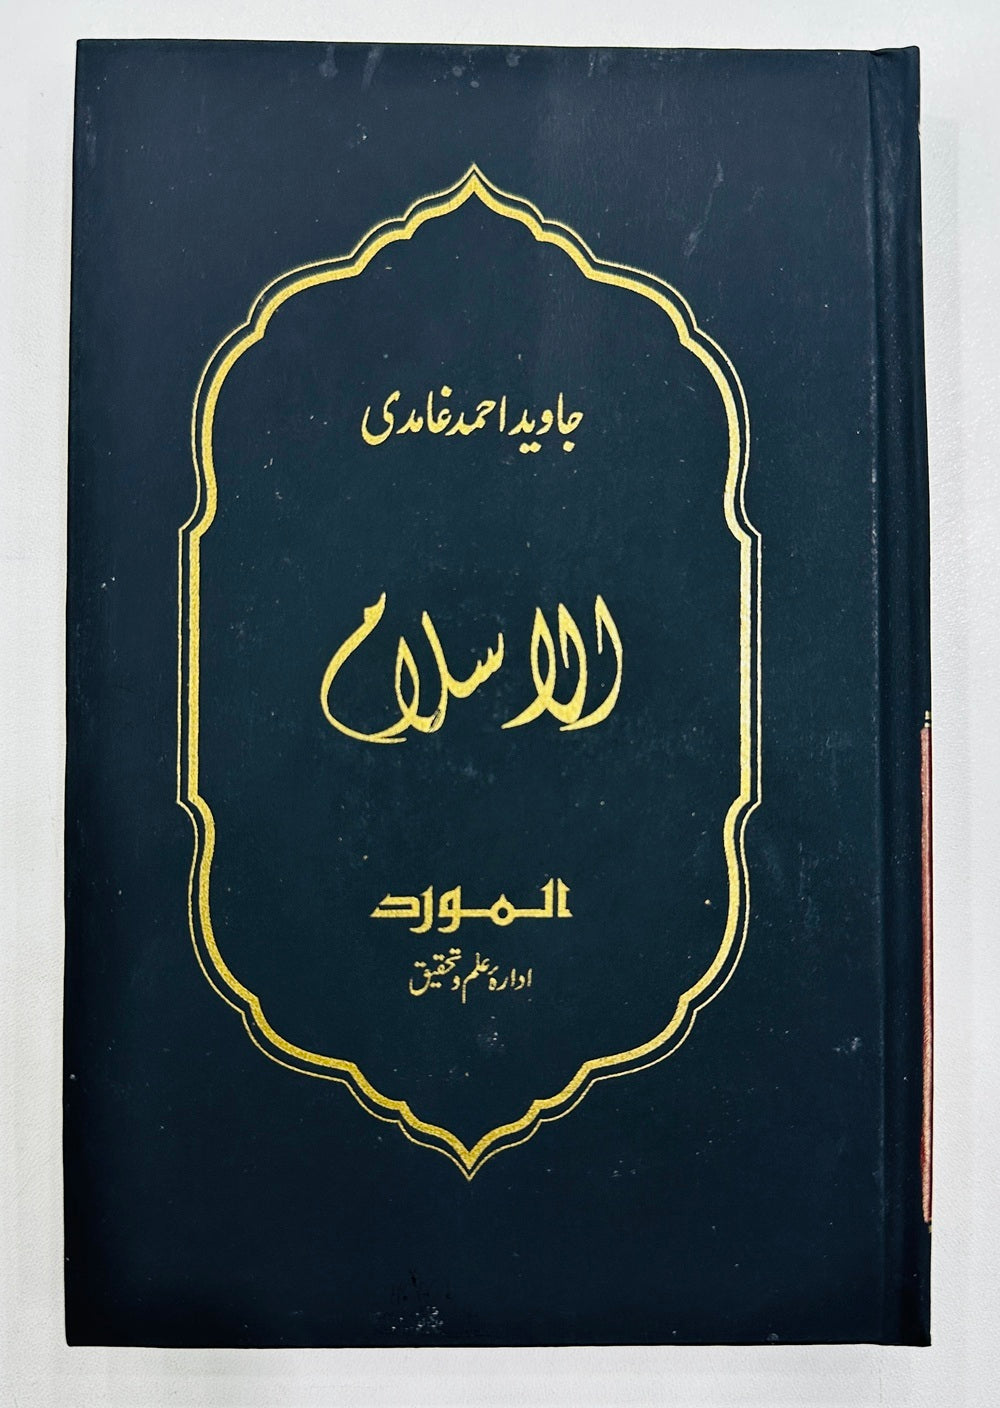 جاوید احمد غامدی
الاسلام
المورد
ادارۂ علم و تحقیق